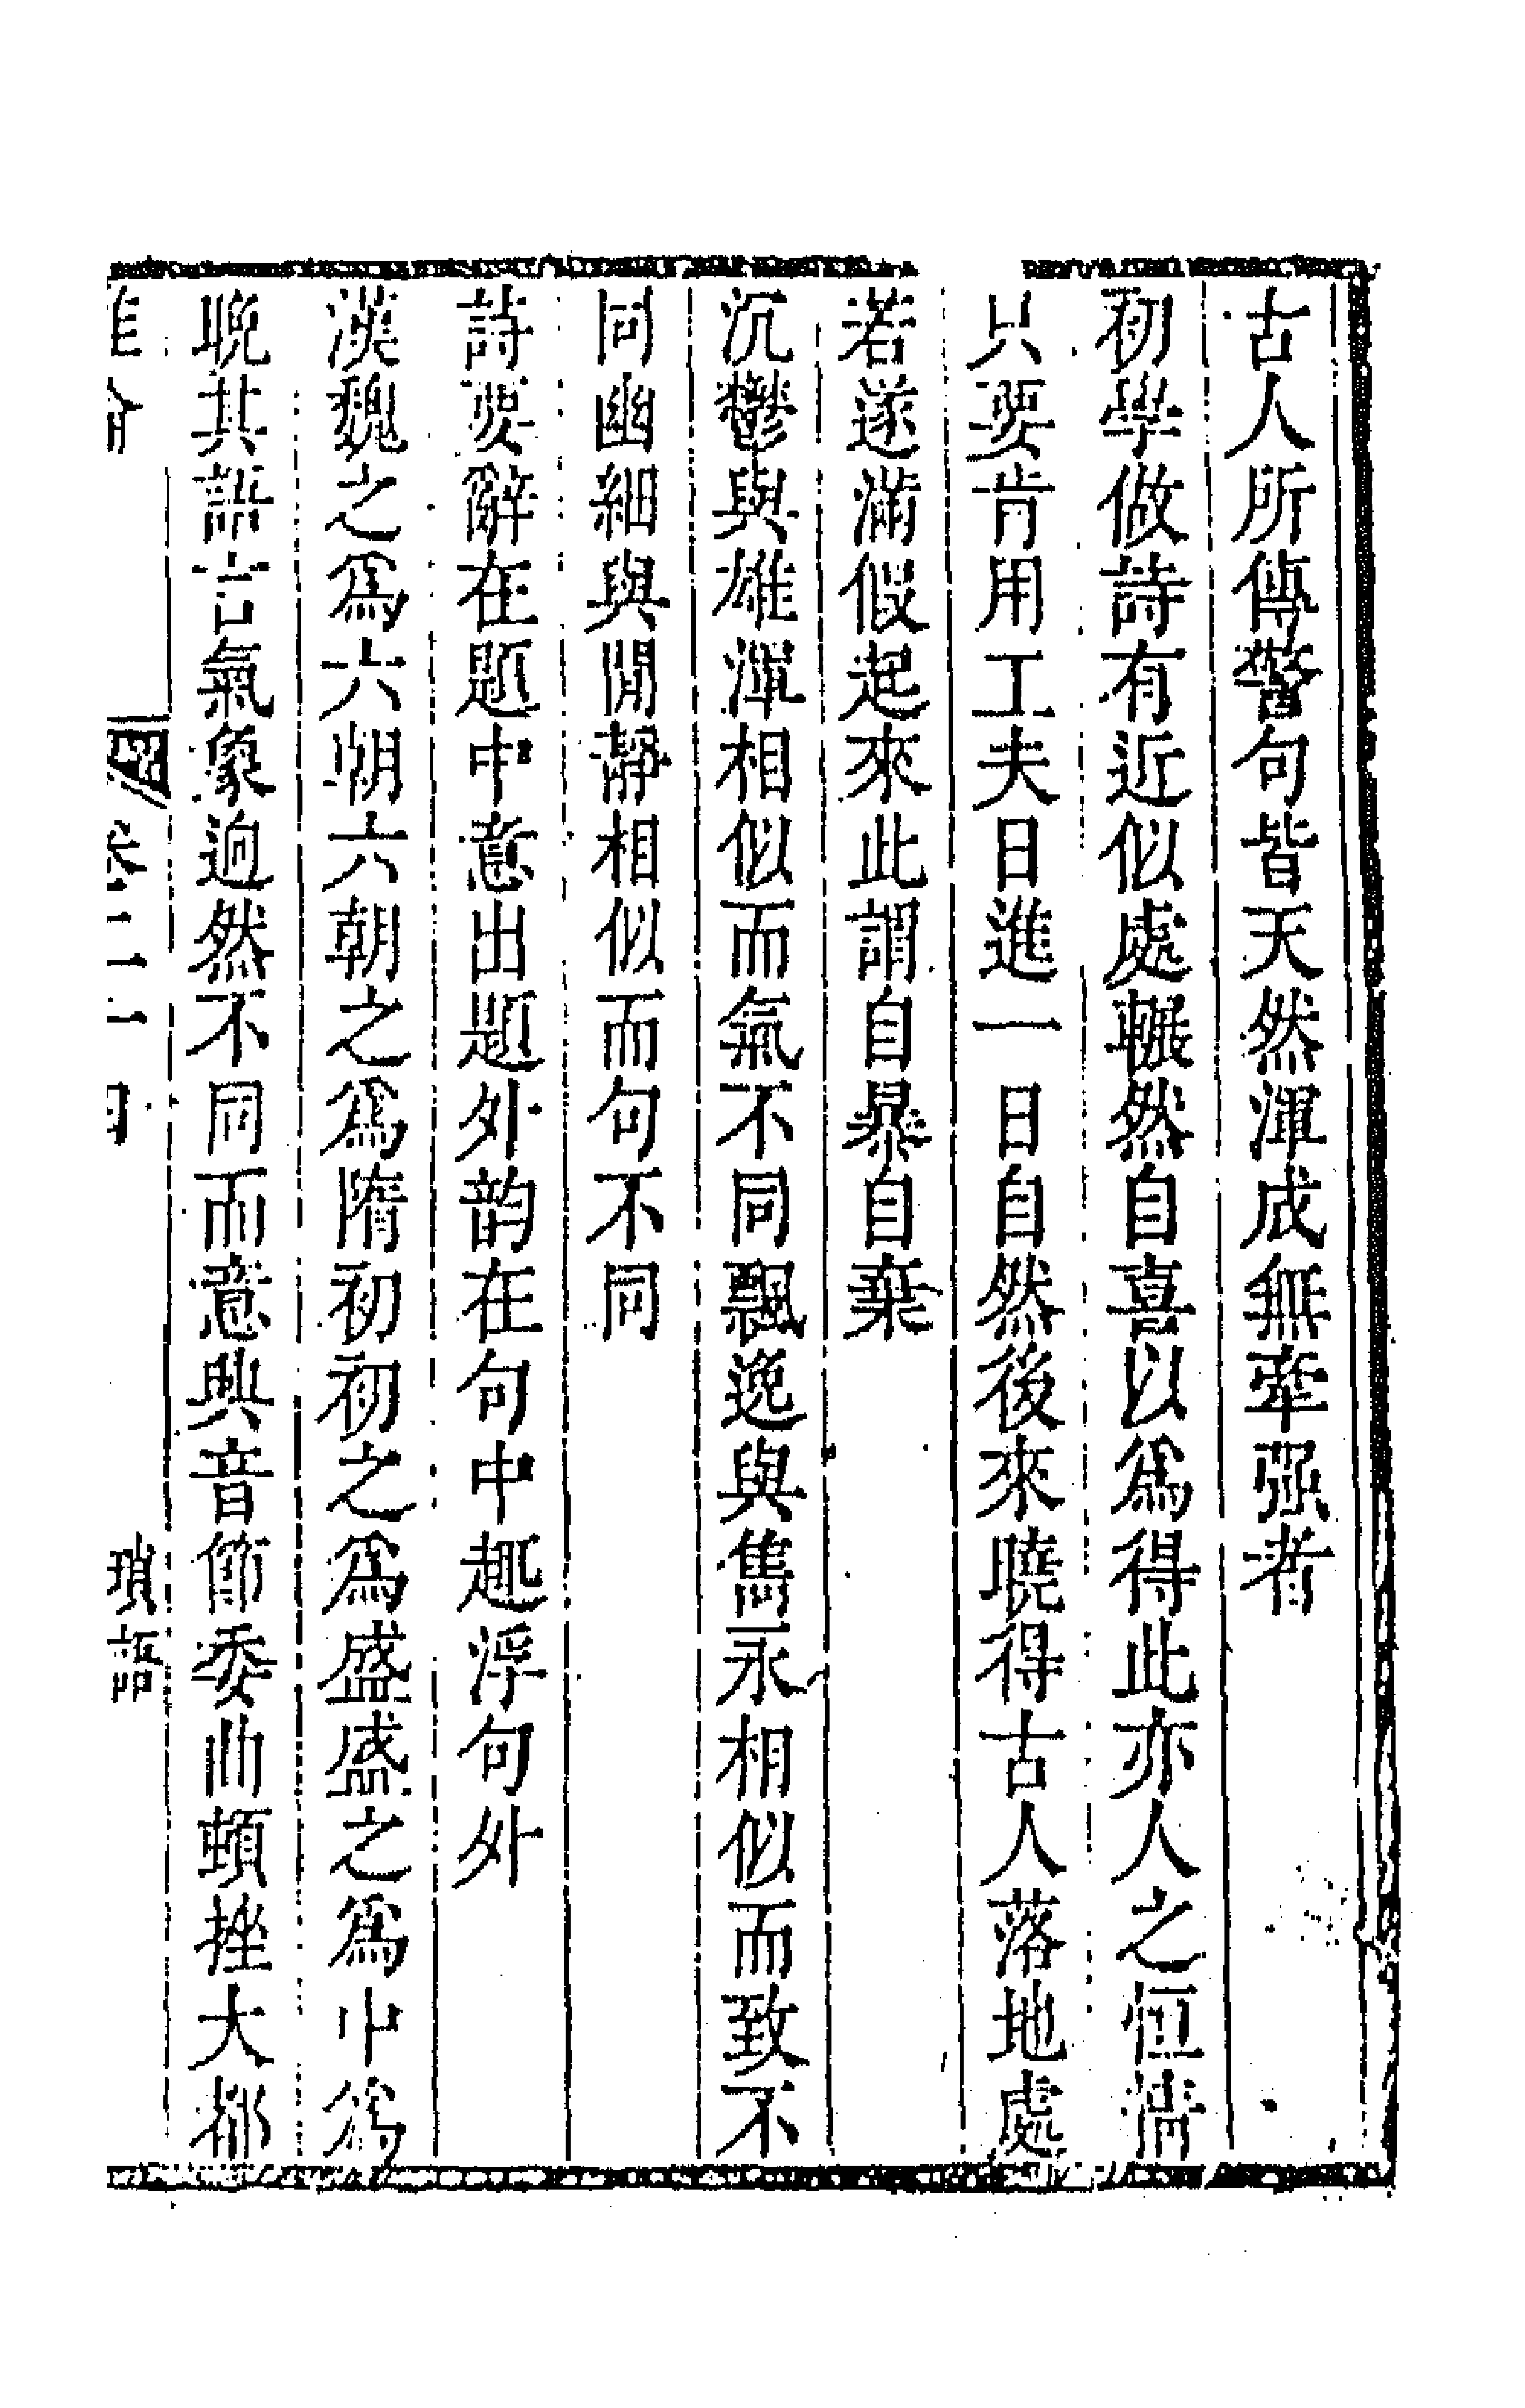 古人所傳警句皆天然渾成無牽强者
初學做詩有近似處輾然自喜以爲得此亦人之恒情
只要肯用工夫日進一日自然後來曉得古人落地處
若遂滿假起來此謂自暴自棄
沉鬱與雄渾相似而氣不同飄逸與雋永相似而致不
同幽細與閒靜相似而句不同
詩要辭在題中意出題外韵在句中趣浮句外
漢魏之爲六朝六朝之爲隋初初之爲盛盛之爲中爲
晚其語言氣象逈然不同而意興音節委曲頓挫大都
卷二 瑣語